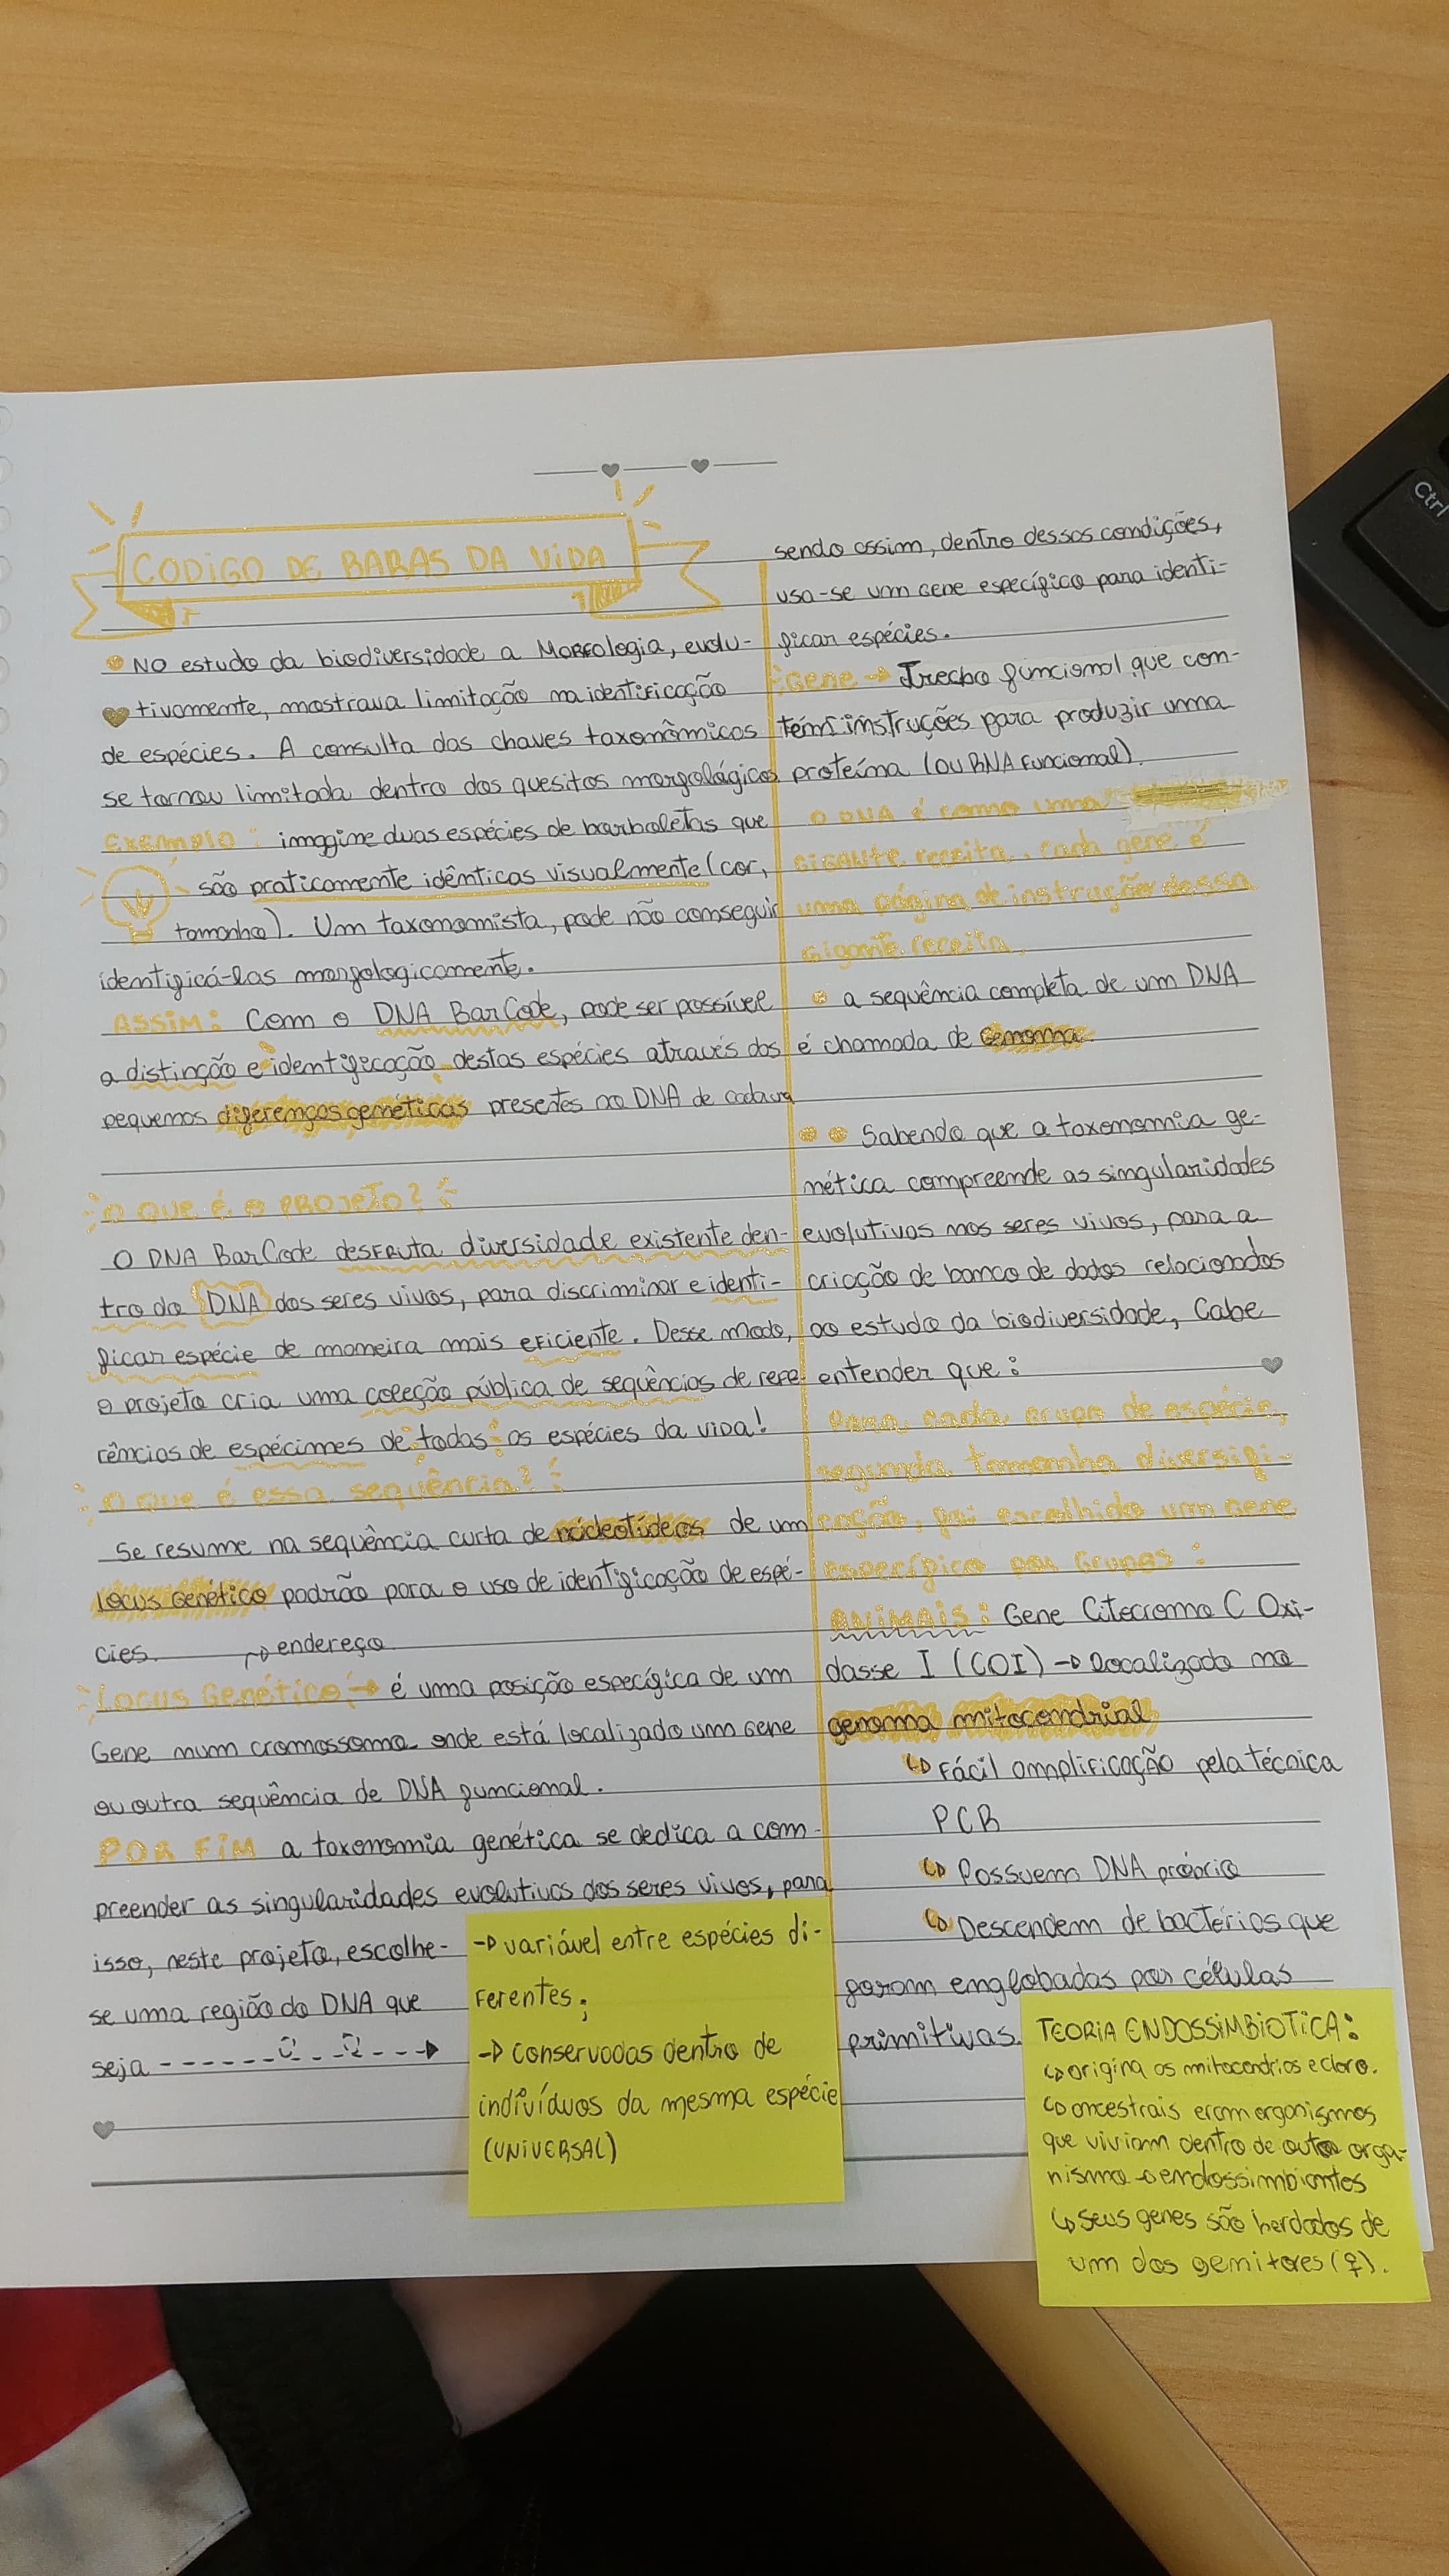 CODIGO DE BARAS DA ViDA
NO estudo da biodiversidade a MORFologia, evolu-
tivamente, mostrava limitação na identificação
de espécies. A consulta das chaves taxonômicas
se tornou limitada dentro dos quesitos morfológicos
EXEMPLO: imagine duas espécies de borboletas que
são praticamente idênticas visualmente (cor,
tamanho). Um taxonomista, pode não conseguir
identificá-las morfologicamente.
ASSIM: Com o DNA BarCode, pode ser possível
a distinção e identificação destas espécies através das
pequenas diferenças genéticas presentes no DNA de cada uma
O QUE É O PROJETO?
O DNA BarCode desfruta diversidade existente den-
tro do DNA dos seres vivos, para discriminar e identi-
ficar espécie de maneira mais eficiente. Desse modo,
o projeto cria uma coleção pública de sequências de refe-
rências de espécimes de todas as espécies da vida!
O que é essa sequência?
Se resume na sequência curta de nucleotídeos de um
locus genético padrão para o uso de identificação de espé-
cies. endereço
Locus Genético: → é uma posição específica de um
Gene num cromossomo onde está localizado um Gene
ou outra sequência de DNA funcional.
POR FIM a taxonomia genética se dedica a com-
preender as singularidades evolutivas dos seres vivos, para
isso, neste projeto, escolhe-
se uma região do DNA que
seja
→ variável entre espécies di-
ferentes;
→ conservadas dentro de
indivíduos da mesma espécie
(UNIVERSAL)
sendo assim, dentro dessas condições,
usa-se um Gene específico para identi-
ficar espécies.
Gene → Trecho funcional que con-
tém instruções para produzir uma
proteína (ou RNA Funcional).
O DNA é como uma
GIGANTE receita, cada gene é
uma página de instrução dessa
Gigante receita.
a sequência completa de um DNA
é chamada de Genoma.
Sabendo que a taxonomia ge-
nética compreende as singularidades
evolutivas nos seres vivos, para a
criação de banco de dados relacionados
ao estudo da biodiversidade, Cabe
entender que:
Para cada grupo de espécie,
segundo tamanha diversifi-
cação, foi escolhido um Gene
específico por Grupos:
ANIMAIS: Gene Citocromo C Oxi-
dasse I (COI) → Localizado no
genoma mitocondrial
↳ Fácil amplificação pela técnica
PCR
↳ Possuem DNA próprio
↳ Descendem de bactérias que
foram englobadas por células
primitivas.
TEORIA ENDOSSIMBIOTICA:
↳ origina as mitocondrias e cloro.
↳ ancestrais eram organismos
que viviam dentro de outro orga-
nismo → endossimbiontes
↳ seus genes são herdados de
um dos genitores (♀).
Ctrl